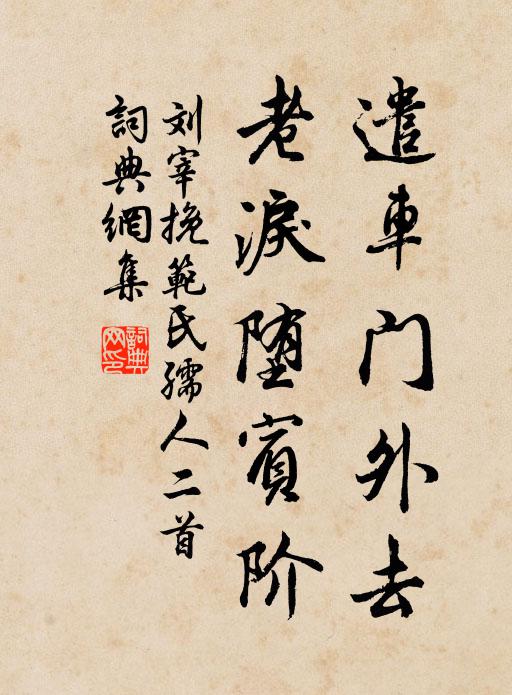 遣車门外去
老淚堕賓阶
刘宰挽範氏孺人二首
詞典網集
詞典
网印